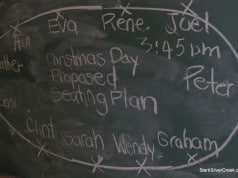 Eva Rene Joel
Ann 3:45pm
Christmas Day
Proposed Peter
Seating Plan
Clint Sarah Wendy Graham
StarkSilverCreek.com